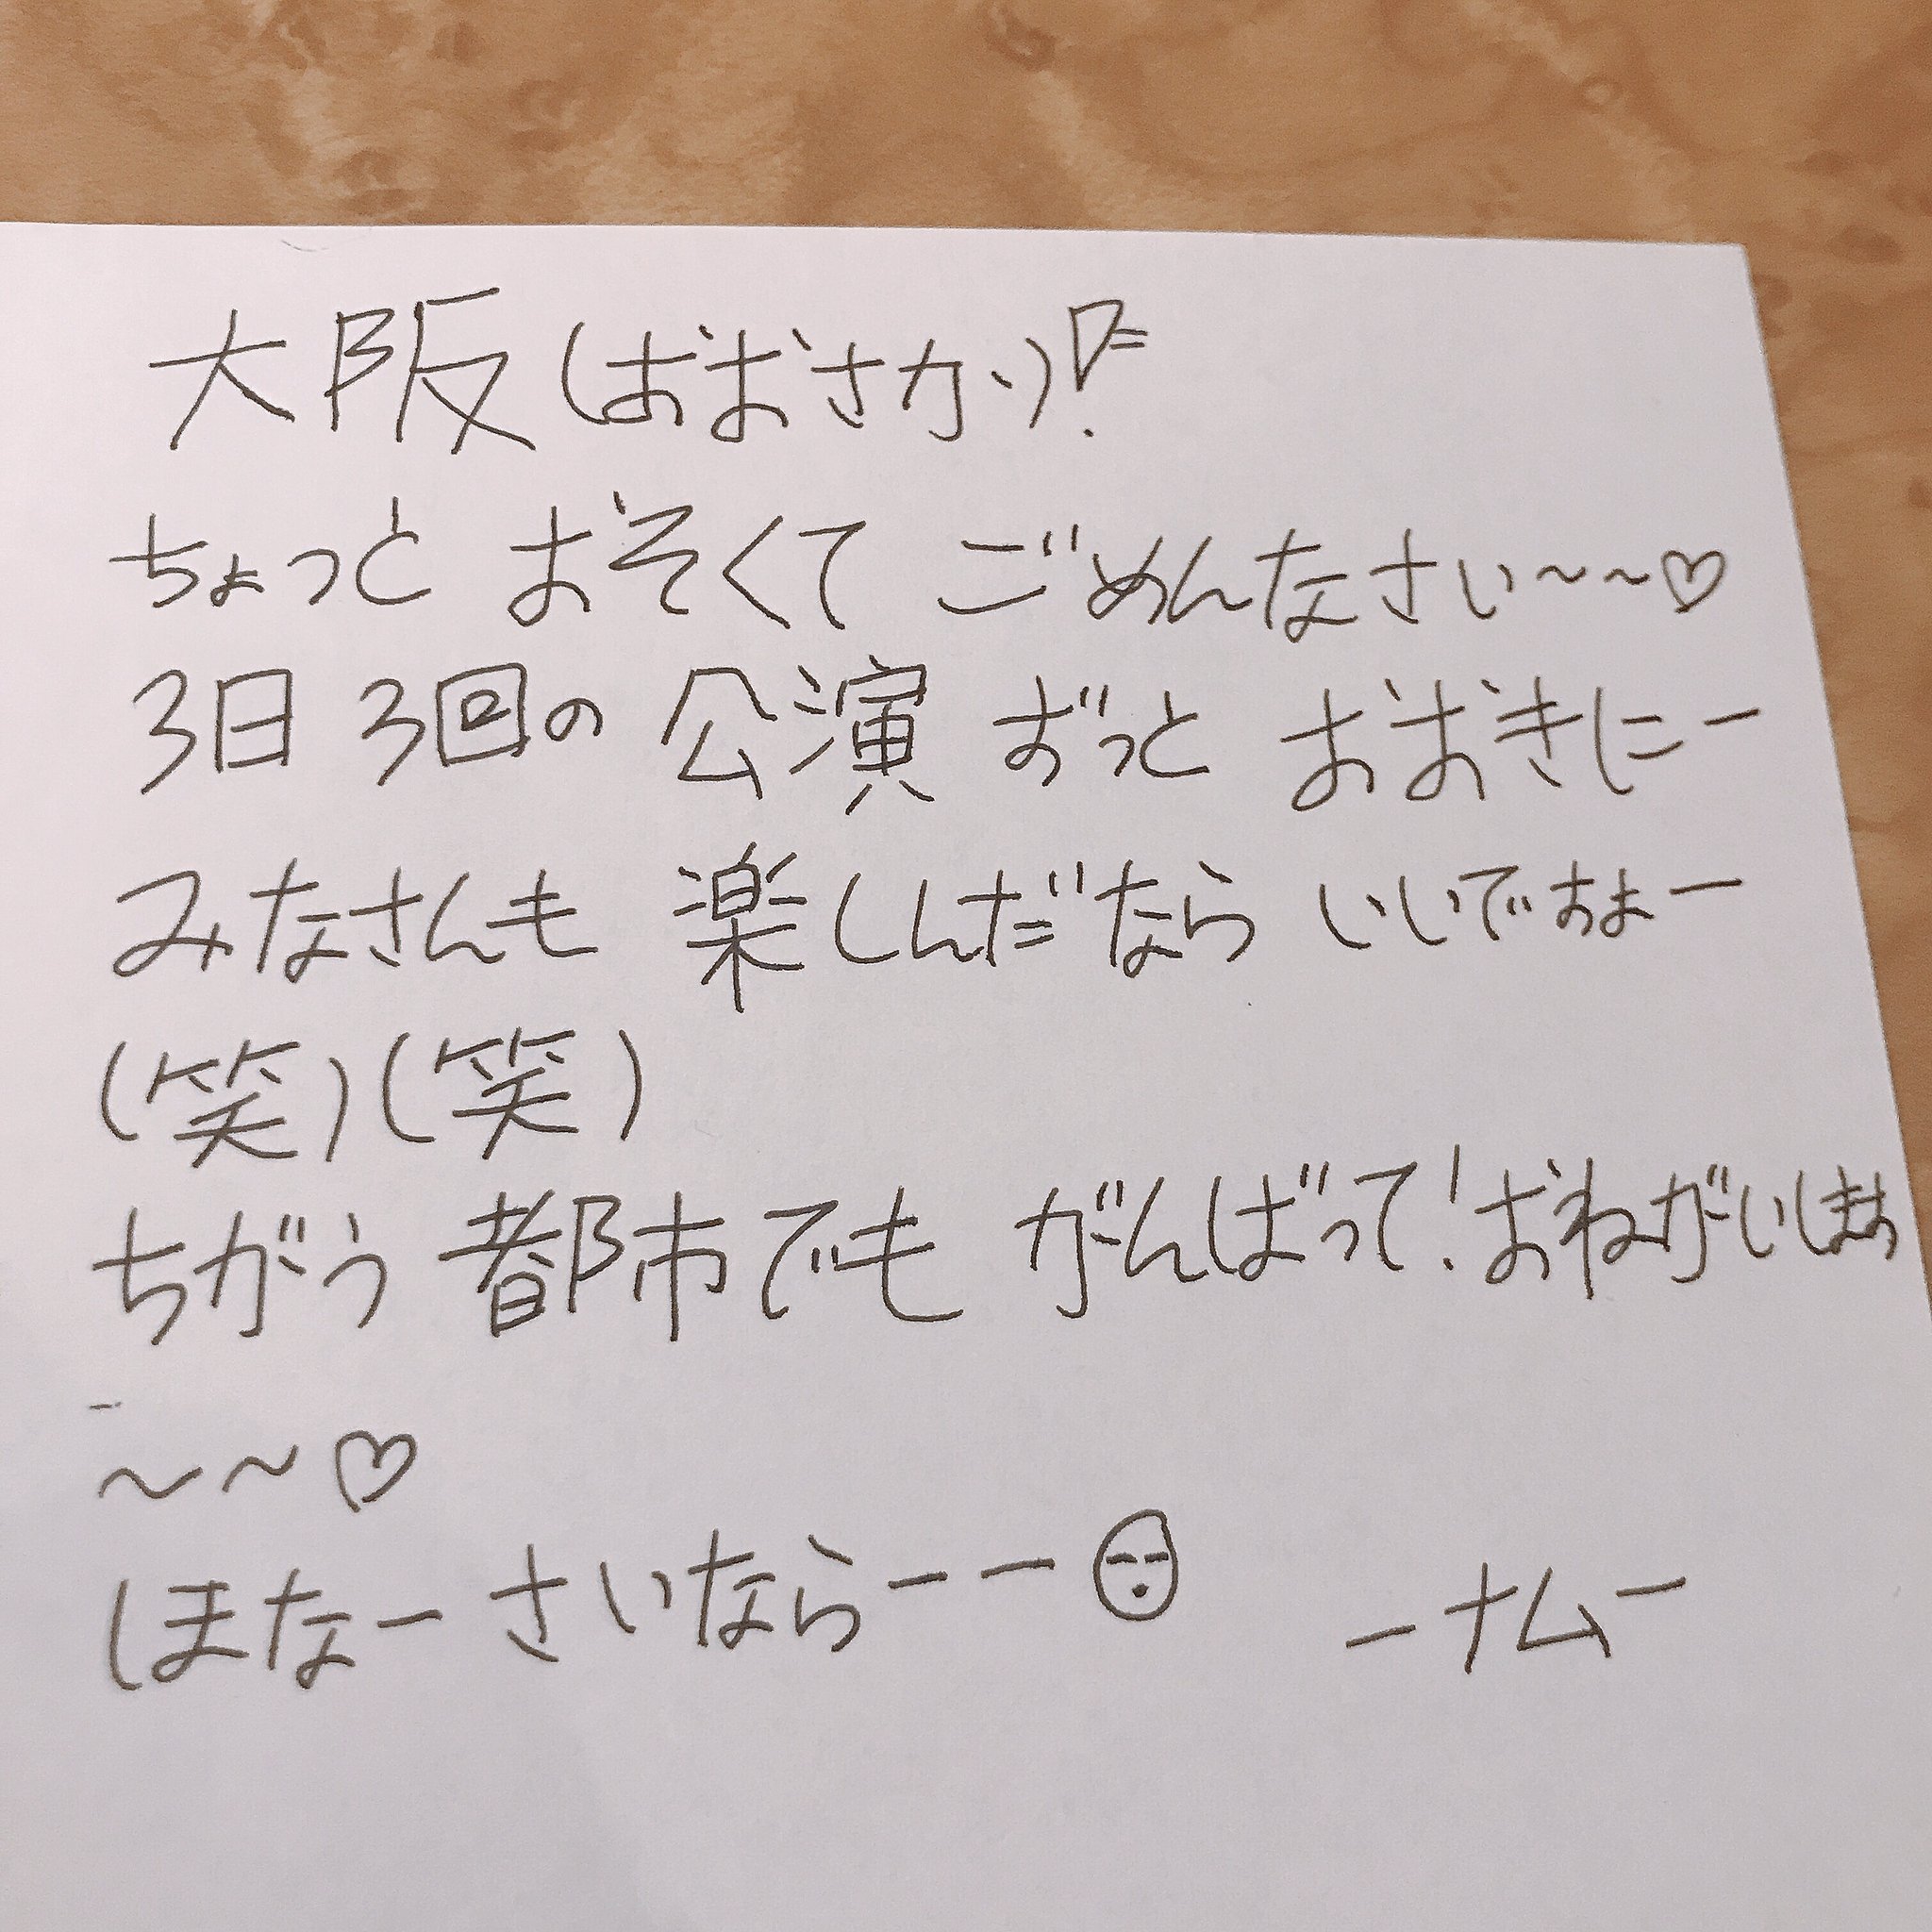 大阪(おおさか)!
ちょっと おそくて ごめんなさい~~♡
3日 3回の 公演 ずっと おおきにー
みなさんも 楽しんだなら いいですよー
(笑)(笑)
ちがう 都市でも がんばって!おねがいしまぁ
~~♡
ほなー さいならーー
ーナムー